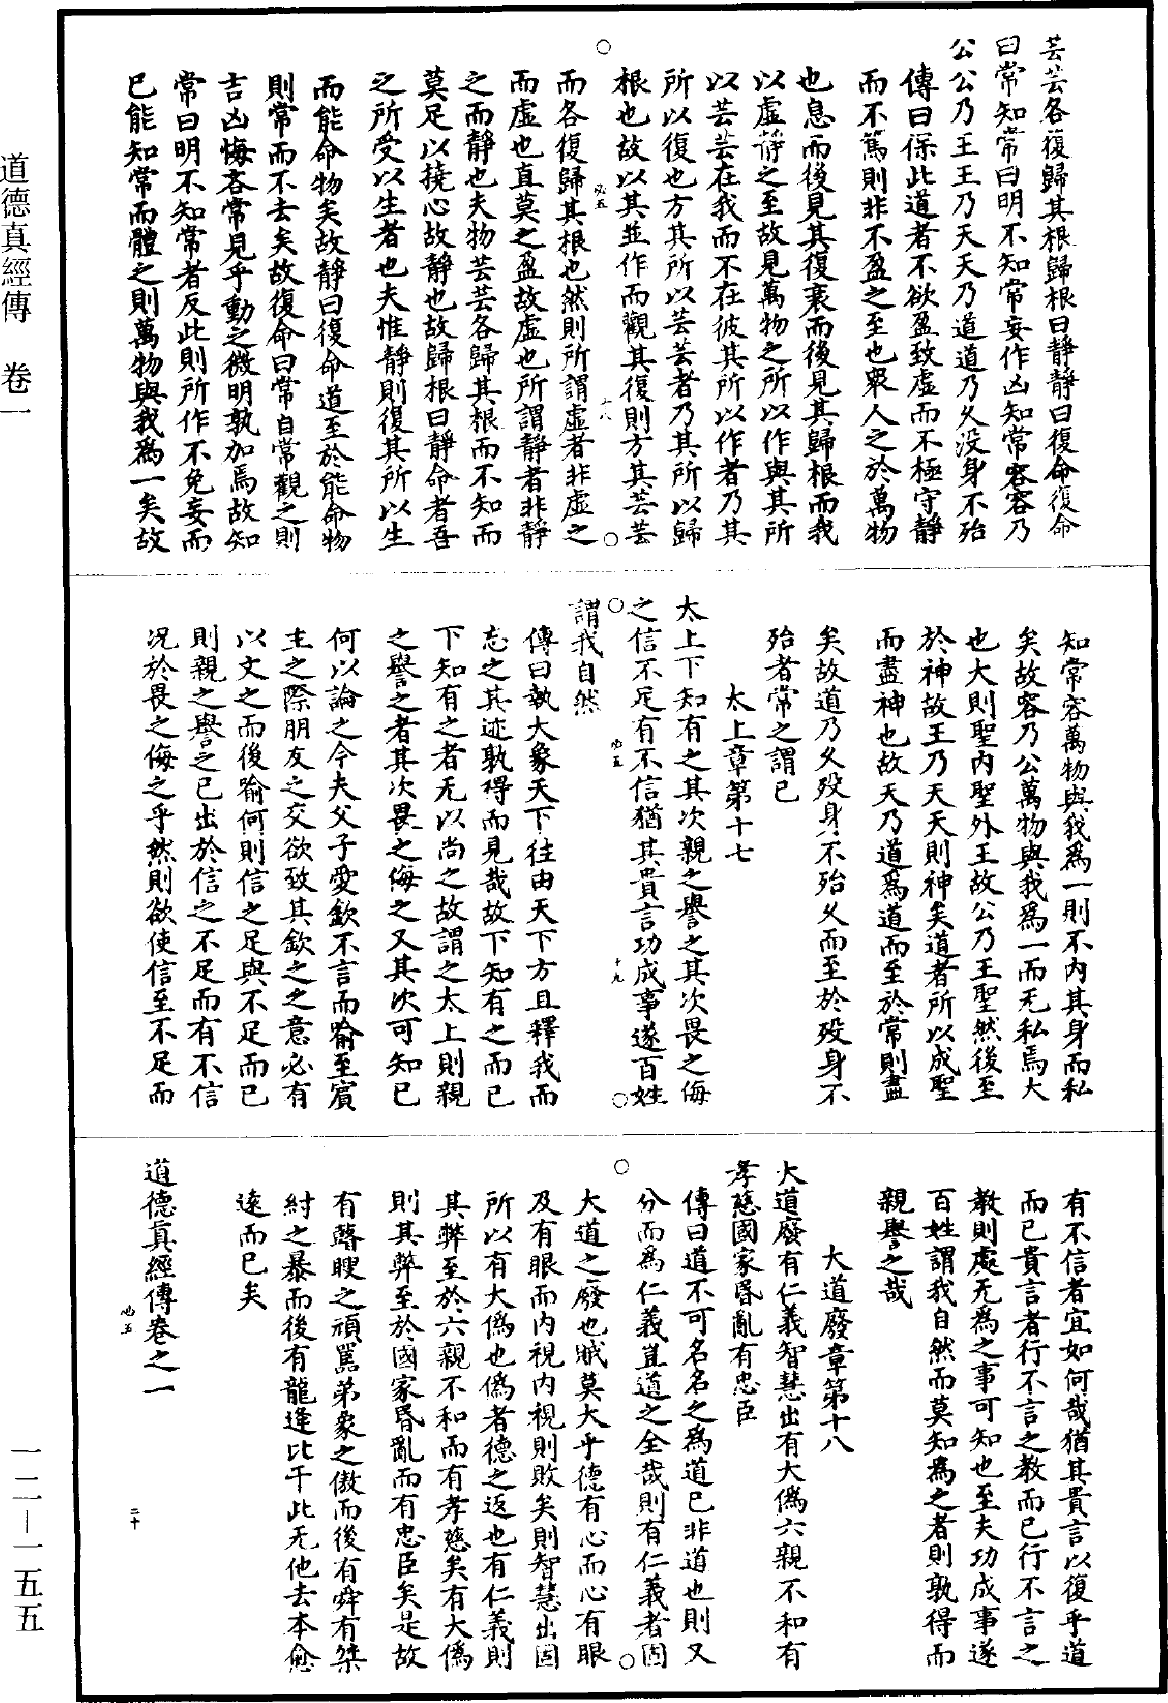 芸芸各復歸其根歸根曰靜靜曰復命復命
曰常知常曰明不知常妄作凶知常容容乃
公公乃王王乃天天乃道道乃久没身不殆
傳曰保此道者不欲盈致虚而不極守靜
而不篤則非不盈之至也衆人之於萬物
也息而後見其復衰而後見其歸根而我
以虚靜之至故見萬物之所以作與其所
以芸芸在我而不在彼其所以作者乃其
所以復也方其所以芸芸者乃其所以歸
根也故以其並作而觀其復則方其芸芸
而各復歸其根也然則所謂虚者非虚之
而虚也直莫之盈故虚也所謂靜者非靜
之而靜也夫物芸芸各歸其根而不知而
莫足以撓心故靜也故歸根曰靜命者吾
之所受以生者也夫惟靜則復其所以生
而能命物矣故靜曰復命道至於能命物
則常而不去矣故復命曰常自常觀之則
吉凶悔吝常見乎動之微明孰加焉故知
常曰明不知常者反此則所作不免妄而
已能知常而體之則萬物與我爲一矣故
知常容萬物與我爲一則不内其身而私
矣故容乃公萬物與我爲一而无私焉大
也大則聖内聖外王故公乃王聖然後至
於神故王乃天天則神矣道者所以成聖
而盡神也故天乃道爲道而至於常則盡
矣故道乃久殁身不殆久而至於殁身不
殆者常之謂已
太上章第十七
太上下知有之其次親之譽之其次畏之侮
之信不足有不信猶其貴言功成事遂百姓
謂我自然
傳曰執大象天下往由天下方且釋我而
忘之其迹孰得而見哉故下知有之而已
下知有之者无以尚之故謂之太上則親
之譽之者其次畏之侮之又其次可知已
何以論之今夫父子愛欽不言而喻至賓
主之際朋友之交欲致其欽之之意必有
以文之而後喻何則信之足與不足而已
則親之譽之已出於信之不足而有不信
况於畏之侮之乎然則欲使信至不足而
有不信者宜如何哉猶其貴言以復乎道
而已貴言者行不言之教而已行不言之
教則處无爲之事可知也至夫功成事遂
百姓謂我自然而莫知爲之者則孰得而
親譽之哉
大道廢章第十八
大道廢有仁義智慧出有大僞六親不和有
孝慈國家昬亂有忠臣
傳曰道不可名名之爲道已非道也則又
分而爲仁義豈道之全哉則有仁義者固
大道之廢也賊莫大乎德有心而心有眼
及有眼而内視内視則敗矣則智慧出固
所以有大僞也僞者德之返也有仁義則
其弊至於六親不和而有孝慈矣有大僞
則其弊至於國家昬亂而有忠臣矣是故
有瞽瞍之頑嚚弟象之傲而後有舜有桀
紂之暴而後有龍逢比干此无他去本愈
遠而已矣
道德真經傳卷之一
道德真經傳 卷一
一二—一五五